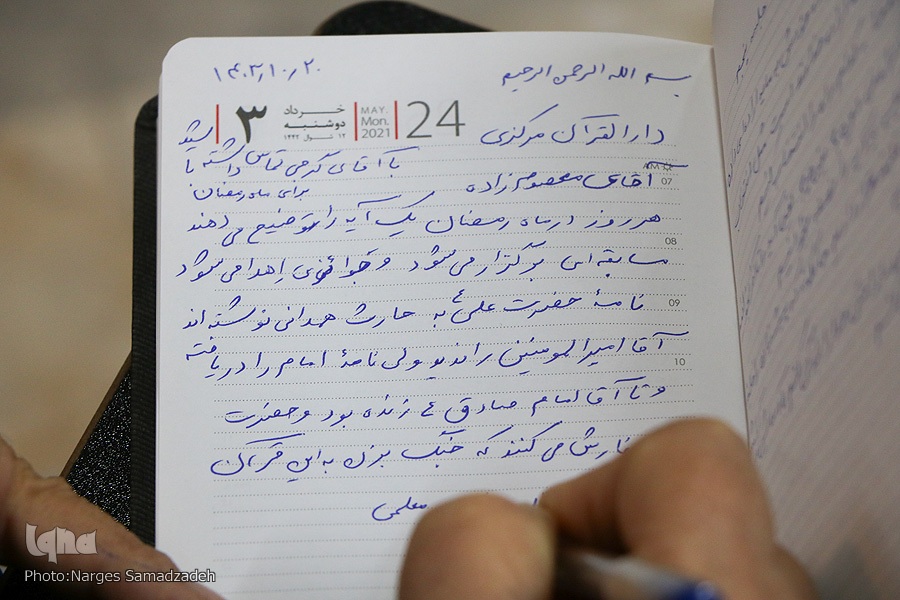 بسم الله الرحمن الرحیم
۱۴۰۳/۱۰/۲۰
24
MAY.
Mon.
2021
خرداد
دوشنبه
۱۲ شوال ۱۴۴۲
۳
دارالقرآن مرکزی
با آقای کرجی تماس داشته باشید
07
آقای معصوم زاده
برای ماه رمضان
هر روز در ماه رمضان یک آیه را توضیح می دهند
08
مسابقه ای برگزار می شود و جوائزی اهدا می شود
09
نامهٔ حضرت علی ع به حارث همدانی نوشته اند
آقا امیرالمومنین را ندید ولی نامهٔ امام را دریافته
10
و تا آقا امام صادق ع زنده بود و حضرت
می کنند که چنگ بزن به این قرآن
iqna
Photo:Narges Samadzadeh